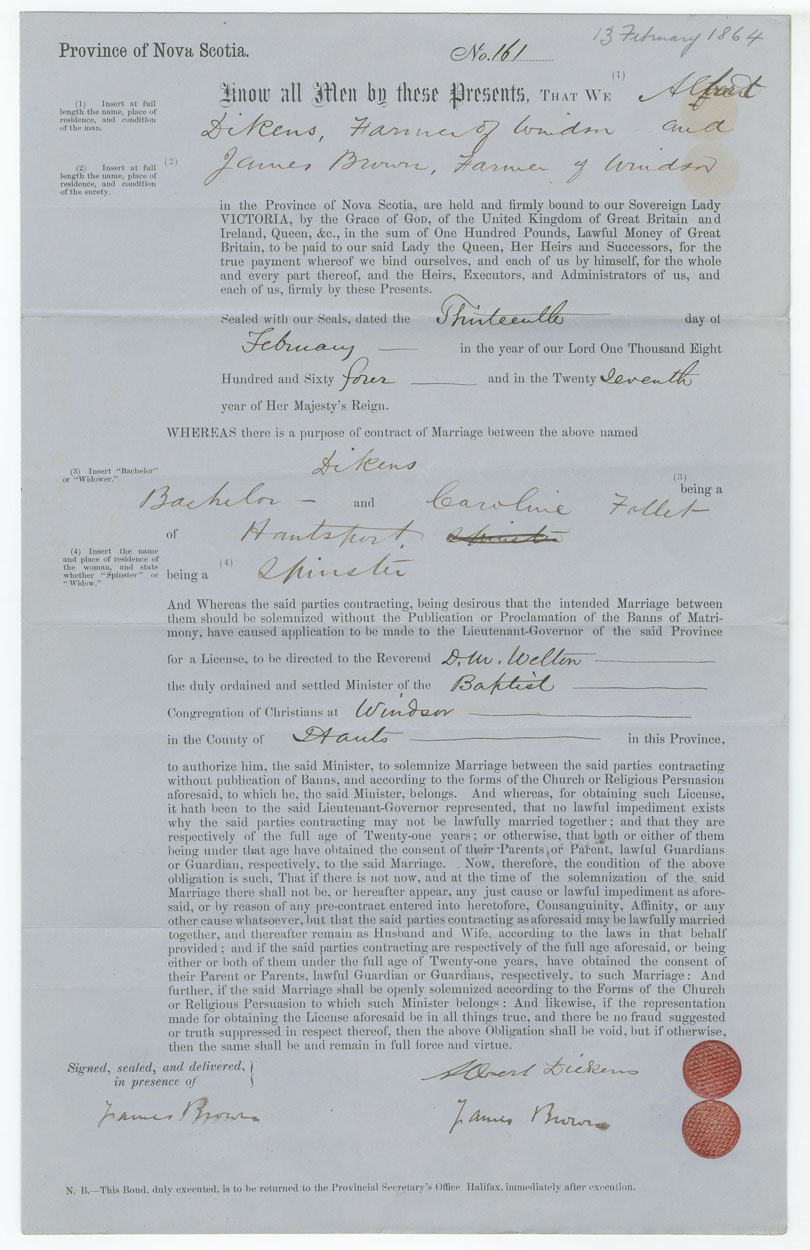 13 February 1864
Province of Nova Scotia.
No. 161
(1) Insert at full
length the name, place of
residence, and condition
of the man.
Know all Men by these Presents, THAT WE (1)
Dikens, Farmer of Windsor and
(2) Insert at full
length the name, place of
residence, and condition
of the surety.
(2) James Brown, Farmer of Windsor
in the Province of Nova Scotia, are held and firmly bound to our Sovereign Lady
VICTORIA, by the Grace of GOD, of the United Kingdom of Great Britain and
Ireland, Queen, &c., in the sum of One Hundred Pounds, Lawful Money of Great
Britain, to be paid to our said Lady the Queen, Her Heirs and Successors, for the
true payment whereof we bind ourselves, and each of us by himself, for the whole
and every part thereof, and the Heirs, Executors, and Administrators of us, and
each of us, firmly by these Presents.
Sealed with our Seals, dated the Thirteenth day of
February — in the year of our Lord One Thousand Eight
Hundred and Sixty four — and in the Twenty Seventh
year of Her Majesty's Reign.
WHEREAS there is a purpose of contract of Marriage between the above named
Dikens
(3) Insert "Bachelor"
or "Widower."
(3) being a
Bachelor — and Caroline Follet
of Hantsport Spinster
(4) Insert the name
and place of residence of
the woman, and state
whether "Spinster" or
"Widow."
being a (4) Spinster
And Whereas the said parties contracting, being desirous that the intended Marriage between
them should be solemnized without the Publication or Proclamation of the Banns of Matri-
mony, have caused application to be made to the Lieutenant-Governor of the said Province
for a License, to be directed to the Reverend D. M. Welton —
the duly ordained and settled Minister of the Baptist —
Congregation of Christians at Windsor —
in the County of Hants — in this Province,
to authorize him, the said Minister, to solemnize Marriage between the said parties contracting
without publication of Banns, and according to the forms of the Church or Religious Persuasion
aforesaid, to which he, the said Minister, belongs. And whereas, for obtaining such License,
it hath been to the said Lieutenant-Governor represented, that no lawful impediment exists
why the said parties contracting may not be lawfully married together; and that they are
respectively of the full age of Twenty-one years; or otherwise, that both or either of them
being under that age have obtained the consent of their Parents or Parent, lawful Guardians
or Guardian, respectively, to the said Marriage. Now, therefore, the condition of the above
obligation is such, That if there is not now, and at the time of the solemnization of the said
Marriage there shall not be, or hereafter appear, any just cause or lawful impediment as afore-
said, or by reason of any pre-contract entered into heretofore, Consanguinity, Affinity, or any
other cause whatsoever, but that the said parties contracting as aforesaid may be lawfully married
together, and thereafter remain as Husband and Wife, according to the laws in that behalf
provided; and if the said parties contracting are respectively of the full age aforesaid, or being
either or both of them under the full age of Twenty-one years, have obtained the consent of
their Parent or Parents, lawful Guardian or Guardians, respectively, to such Marriage: And
further, if the said Marriage shall be openly solemnized according to the Forms of the Church
or Religious Persuasion to which such Minister belongs: And likewise, if the representation
made for obtaining the License aforesaid be in all things true, and there be no fraud suggested
or truth suppressed in respect thereof, then the above Obligation shall be void, but if otherwise,
then the same shall be and remain in full force and virtue.
Signed, sealed, and delivered,
in presence of
Albert Dickens
James Brown James Brown
N. B.—This Bond, duly executed, is to be returned to the Provincial Secretary's Office Halifax, immediately after execution.